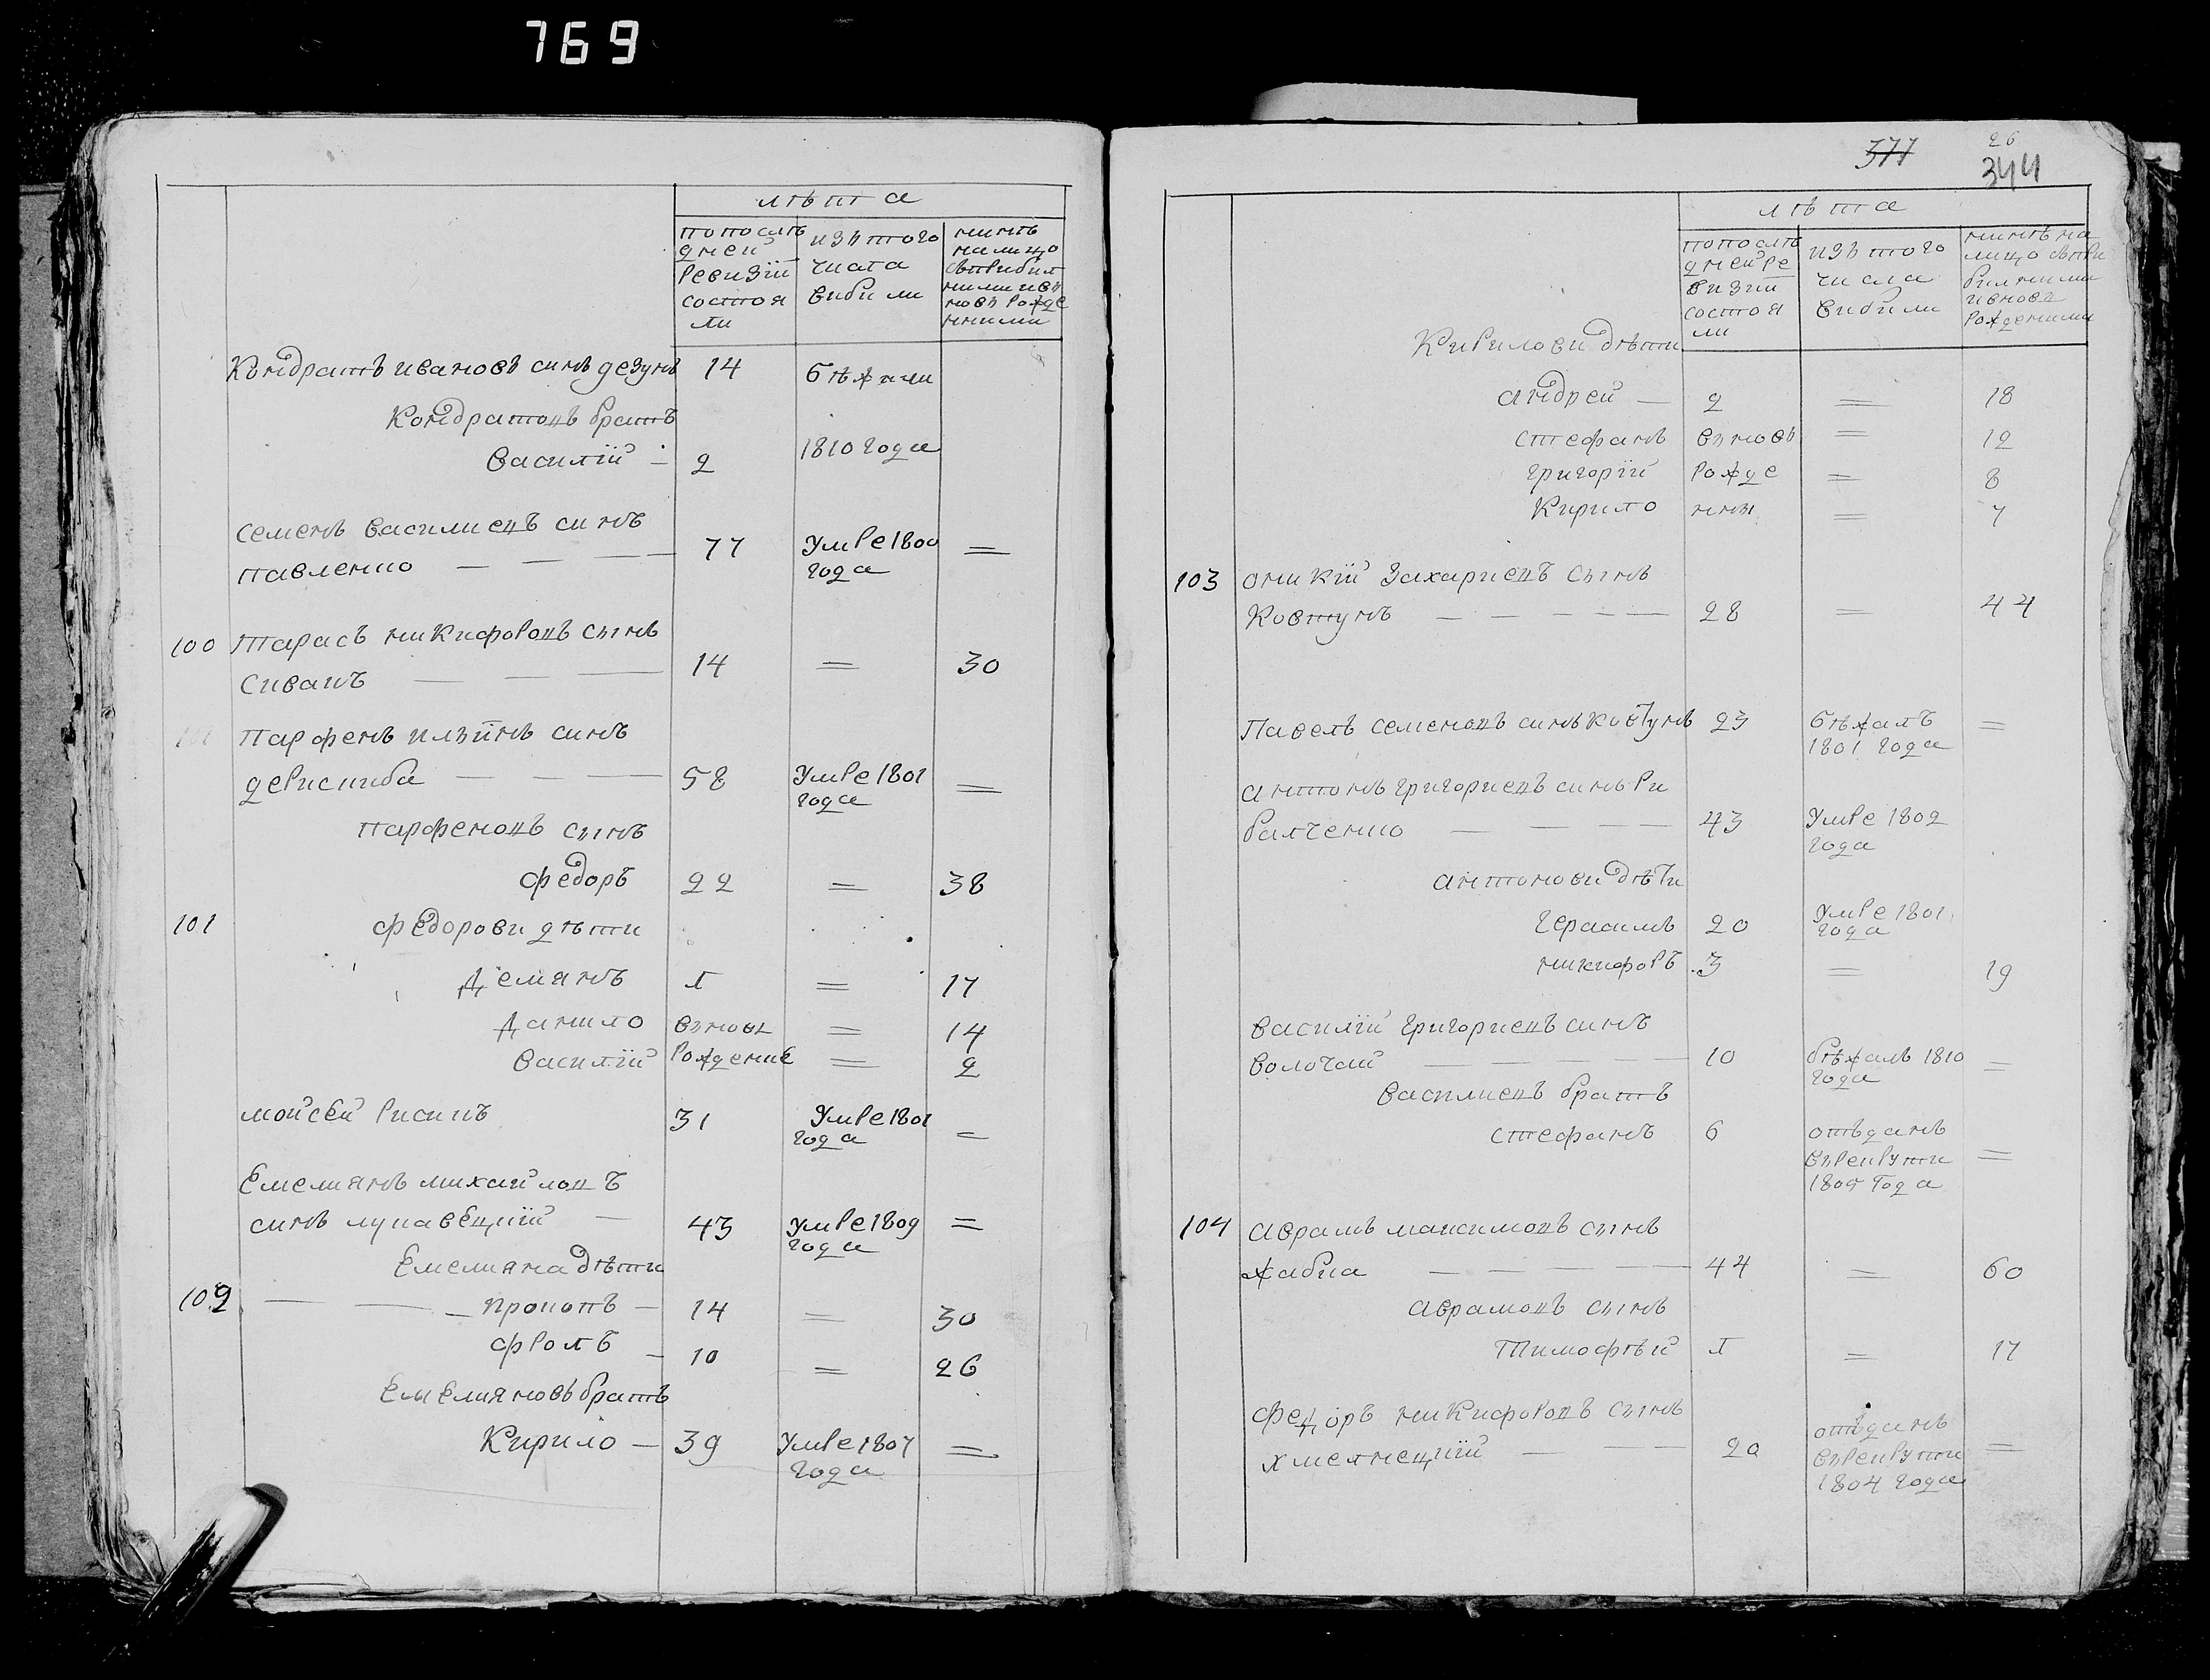 769
лѣта
попослѣ
дней
ревизіи
состоя
ли
изъ того
числа
вибили
нинѣ
налицо
съприбил
ними ивъ
новъ рожде
нними
Кондратъ ивановъ синъ дезунъ 14 бѣжали
Кондратовъ братъ
василій 2 1810 года
семенъ василиевъ синъ
павленко 77 Умре 1800
года
100 тарасъ никифоровъ сынъ
сивакъ 14 = 30
парфенъ илъинъ синъ
дерискиба 58 Умре 1801
года =
парфеновъ сынъ
федоръ 22 = 38
101 федорови дѣти
Демянъ = 17
Данило въновь = 14
василій рождение = 2
мойсей рисикъ 31 Умре 1801
года =
Емелиянъ михайловъ
синъ лукавецкій 43 Умре 1809
года =
Емелияна дѣти
102 прокопъ 14 = 30
фролъ 10 = 26
Емелияновъ братъ
Кирило 39 Умре 1807
года =
377
26
344
лѣта
попослѣ
дней ре
визии
состоя
ли
изъ того
числа
вибили
нинѣ на
лицо съпри
билними
ивновъ
рождениими
Кирилови дѣти
андрей 2 = 18
стефанъ вьновъ = 12
григорій рожде = 8
Кирило ннъ = 7
103 оникій захариевъ сынъ
Ковтунъ 28 = 44
Павелъ семеновъ синъ Ковтунъ 23 бѣжалъ
1801 года =
антонъ григориевъ синъ ри
балченко 43 Умре 1802
года
антонови дѣти
герасимъ 20 Умре 1801
года
никифоръ 3 = 19
василій григориевъ синъ
волочай 10 бѣжалъ 1810
года =
василиевъ братъ
стефанъ 6 отъданъ
върекрути
1805 года =
104 аврамъ максимовъ сынъ
жабка 44 = 60
аврамовъ сынъ
Тимофѣй = 17
Федоръ никифоровъ сынъ
хмелнецкій 20 отъданъ
върекрути
1804 года =